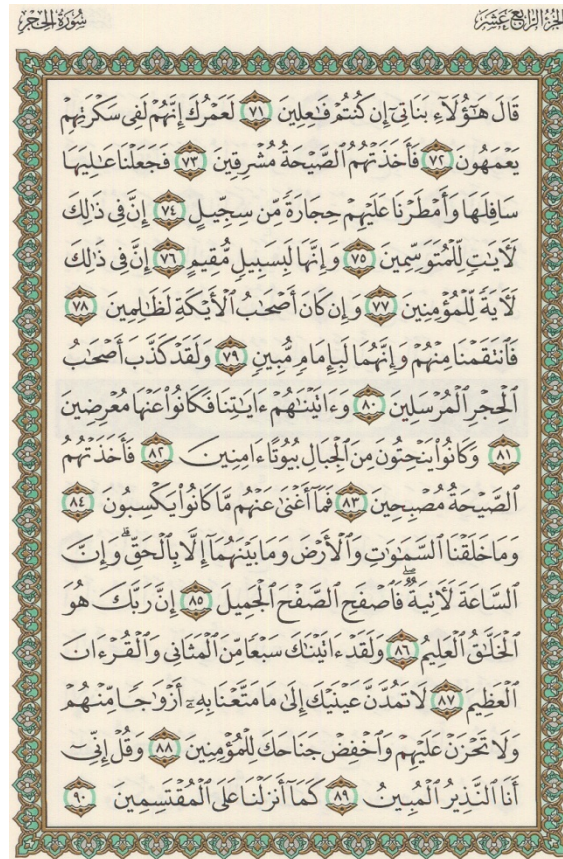 الجزء الرابع عشر
سورة الحجر
قَالَ هَٰٓؤُلَآءِ بَنَاتِيٓ إِن كُنتُمْ فَٰعِلِينَ ٧١ لَعَمْرُكَ إِنَّهُمْ لَفِي سَكْرَتِهِمْ
يَعْمَهُونَ ٧٢ فَأَخَذَتْهُمُ ٱلصَّيْحَةُ مُشْرِقِينَ ٧٣ فَجَعَلْنَا عَٰلِيَهَا
سَافِلَهَا وَأَمْطَرْنَا عَلَيْهِمْ حِجَارَةً مِّن سِجِّيلٍ ٧٤ إِنَّ فِي ذَٰلِكَ
لَأٓيَٰتٍ لِّلْمُتَوَسِّمِينَ ٧٥ وَإِنَّهَا لَبِسَبِيلٍ مُّقِيمٍ ٧٦ إِنَّ فِي ذَٰلِكَ
لَأٓيَةً لِّلْمُؤْمِنِينَ ٧٧ وَإِن كَانَ أَصْحَٰبُ ٱلْأَيْكَةِ لَظَٰلِمِينَ ٧٨
فَٱنتَقَمْنَا مِنْهُمْ وَإِنَّهُمَا لَبِإِمَامٍ مُّبِينٍ ٧٩ وَلَقَدْ كَذَّبَ أَصْحَٰبُ
ٱلْحِجْرِ ٱلْمُرْسَلِينَ ٨٠ وَءَاتَيْنَٰهُمْ ءَايَٰتِنَا فَكَانُوا۟ عَنْهَا مُعْرِضِينَ
٨١ وَكَانُوا۟ يَنْحِتُونَ مِنَ ٱلْجِبَالِ بُيُوتًا ءَامِنِينَ ٨٢ فَأَخَذَتْهُمُ
ٱلصَّيْحَةُ مُصْبِحِينَ ٨٣ فَمَآ أَغْنَىٰ عَنْهُم مَّا كَانُوا۟ يَكْسِبُونَ ٨٤
وَمَا خَلَقْنَا ٱلسَّمَٰوَٰتِ وَٱلْأَرْضَ وَمَا بَيْنَهُمَآ إِلَّا بِٱلْحَقِّ ۗ وَإِنَّ
ٱلسَّاعَةَ لَأٓتِيَةٌ ۖ فَٱصْفَحِ ٱلصَّفْحَ ٱلْجَمِيلَ ٨٥ إِنَّ رَبَّكَ هُوَ
ٱلْخَلَّٰقُ ٱلْعَلِيمُ ٨٦ وَلَقَدْ ءَاتَيْنَٰكَ سَبْعًا مِّنَ ٱلْمَثَانِي وَٱلْقُرْءَانَ
ٱلْعَظِيمَ ٨٧ لَا تَمُدَّنَّ عَيْنَيْكَ إِلَىٰ مَا مَتَّعْنَا بِهِۦٓ أَزْوَٰجًا مِّنْهُمْ
وَلَا تَحْزَنْ عَلَيْهِمْ وَٱخْفِضْ جَنَاحَكَ لِلْمُؤْمِنِينَ ٨٨ وَقُلْ إِنِّيٓ
أَنَا ٱلنَّذِيرُ ٱلْمُبِينُ ٨٩ كَمَآ أَنزَلْنَا عَلَى ٱلْمُقْتَسِمِينَ ٩٠